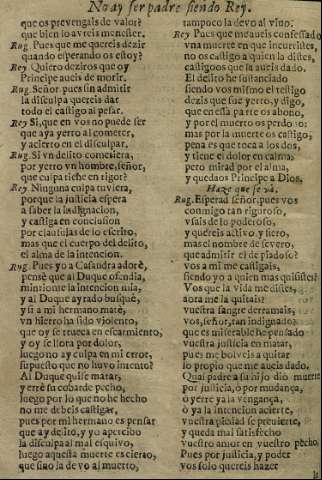 No ay ser padre siendo Rey.
que os preuengais de valor?
que bien lo aureis menester.
Rug. Pues que me quereis dezir
quando esperando os estoy?
Rey Quiero deziros que oy
Principe aueis de morir.
Rug. Señor, pues sin admitir
la disculpa quereis dar
todo el castigo al pesar.
Rey Si, que en vos no puede ser
que aya yerro al cometer,
y acierto en el disculpar.
Rug. Si vn delito cometiera,
por yerro vn hombre, señor,
que culpa tiene en rigor?
Rey. Ninguna culpa tuuiera,
porque la justicia espera
a saber la indignacion,
y castiga en conclusion
por clausulas de lo escrito,
mas que el cuerpo del delito,
el alma de la intencion.
Rug. Pues yo a Casandra adorè,
pensè que al Duque ofendia,
mintiome la intencion mia,
y al Duque ayrado busquè,
y si a mi hermano matè,
vn hierro ha sido violento,
que oy se trueca en escarmiento,
y oy se llora por dolor,
luego no ay culpa en mi error,
supuesto que no huvo intento?
Al Duque quise matar,
y errè su cobarde pecho,
luego por lo que no he hecho
no me debeis castigar,
pues por mi hermano es pensar
que ay delito, y yo apercibo
la disculpa al mal esquiuo,
luego aquesta muerte es cierto,
que sino la devo al muerto,
tampoco la devo al viuo.
Rey Pues que me aueis confessado
vna muerte en que incurristes,
no os castigo a quien la distes,
castigoos que la aueis dado.
El delito he sustanciado
siendo vos mismo el testigo
dezis que fue yerro, y digo,
que en essa parte os abono,
y por el muerto os perdono:
mas por la muerte os castigo,
pena es que toca a los dos,
y tiene el dolor en calma,
pero mirad por el alma,
y quedaos Principe a Dios.
Haze que se và.
Rug. Esperad señor, pues vos
conmigo tan riguroso,
vsais de lo poderoso,
y quereis actiuo, y fiero,
mas el nombre de seuero,
que admitir el de piadoso?
vos a mi me castigais,
siendo yo a quien mas quisistes?
Vos que la vida me distes,
aora me la quitais?
vuestra sangre derramais,
vos, señor, tan indignado?
que es miserable he pensado
vuestra justicia en matar,
pues me bolueis a quitar
lo propio que me aueis dado.
Qual padre a su hijo diò muerte
por justicia, o por mudança,
ò yerre ya la vengança,
ò ya la intencion acierte,
vuestra piedad se preuierte,
y queda mal satisfecho
vuestro amor en vuestro pecho,
Pues por justicia, y poder
vos solo quereis hazer